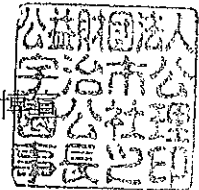 公益財団法人
宇治市公
園公社理
事長之印